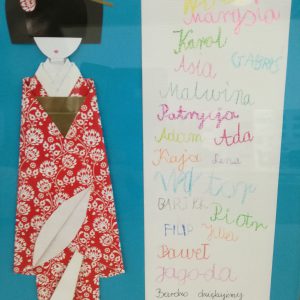 Małgosia
Karol
Asia GABRYŚ
Malwina
Patrycja
Adam Ada
Kaja Lena
Wiktor
Piotr
FILIP Julka
Paweł
Jagoda
Bardzo dziękujemy